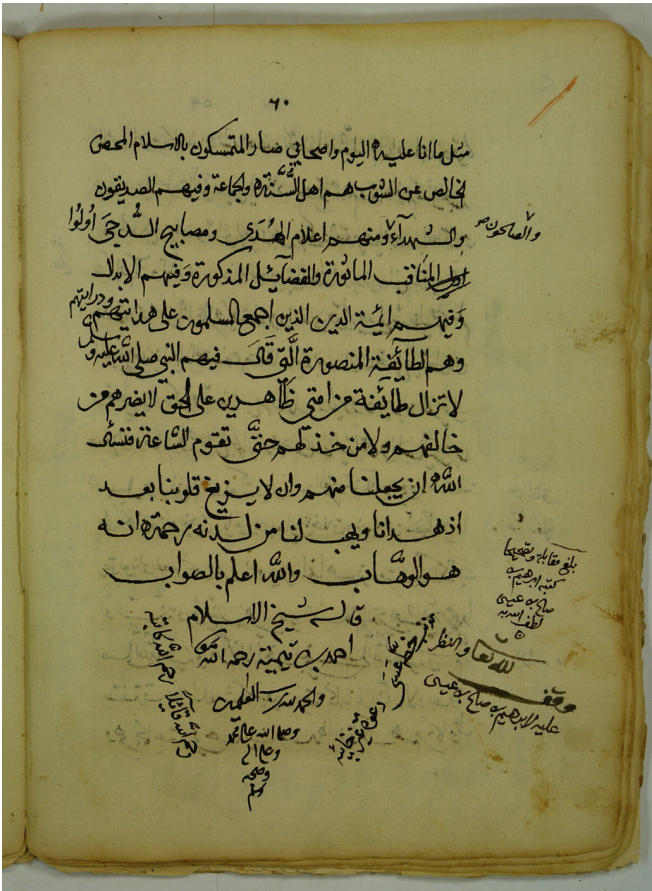 ٦٠
مثل ما انا عليه اليوم واصحابي صار المتمسكون بالاسلام المحض
الخالص عن الشوب هم اهل السنة والجماعة وفيهم الصديقون
والشهدآء ومنهم اعلام الهدى ومصابيح الدجى أولوا
والصالحون صح
المناقب الماثورة والفضآئل المذكورة وفيهم الابدال
وفيهم ائمة الدين الذين اجمع المسلمون على هدايتهم ودرايتهم
وهم الطآئفة المنصورة التي قال فيهم النبي صلى الله عليه وسلم
لا تزال طآئفة من امتي ظاهرين على الحق لا يضرهم من
خالفهم ولا من خذلهم حتى تقوم الساعة فنسئل
الله ان يجعلنا منهم وان لا يزيغ قلوبنا بعد
اذ هدانا ويهب لنا من لدنه رحمة انه
هو الوهاب والله اعلم بالصواب
قاله شيخ الاسلام
احمد بن تيمية رحمه الله
والحمد لله رب العلمين
وصلى الله على محمد
وعلى اله
وصحبه
وسلم
رحم الله كاتبه
رحم الله قائلا
بلغ مقابلة وتصحيحا
كتبه ابرهيم بن
صالح بن عيسى
لطف الله به
وقف لله تعا والنظر
عليه لابرهيم بن صالح بن عيسى